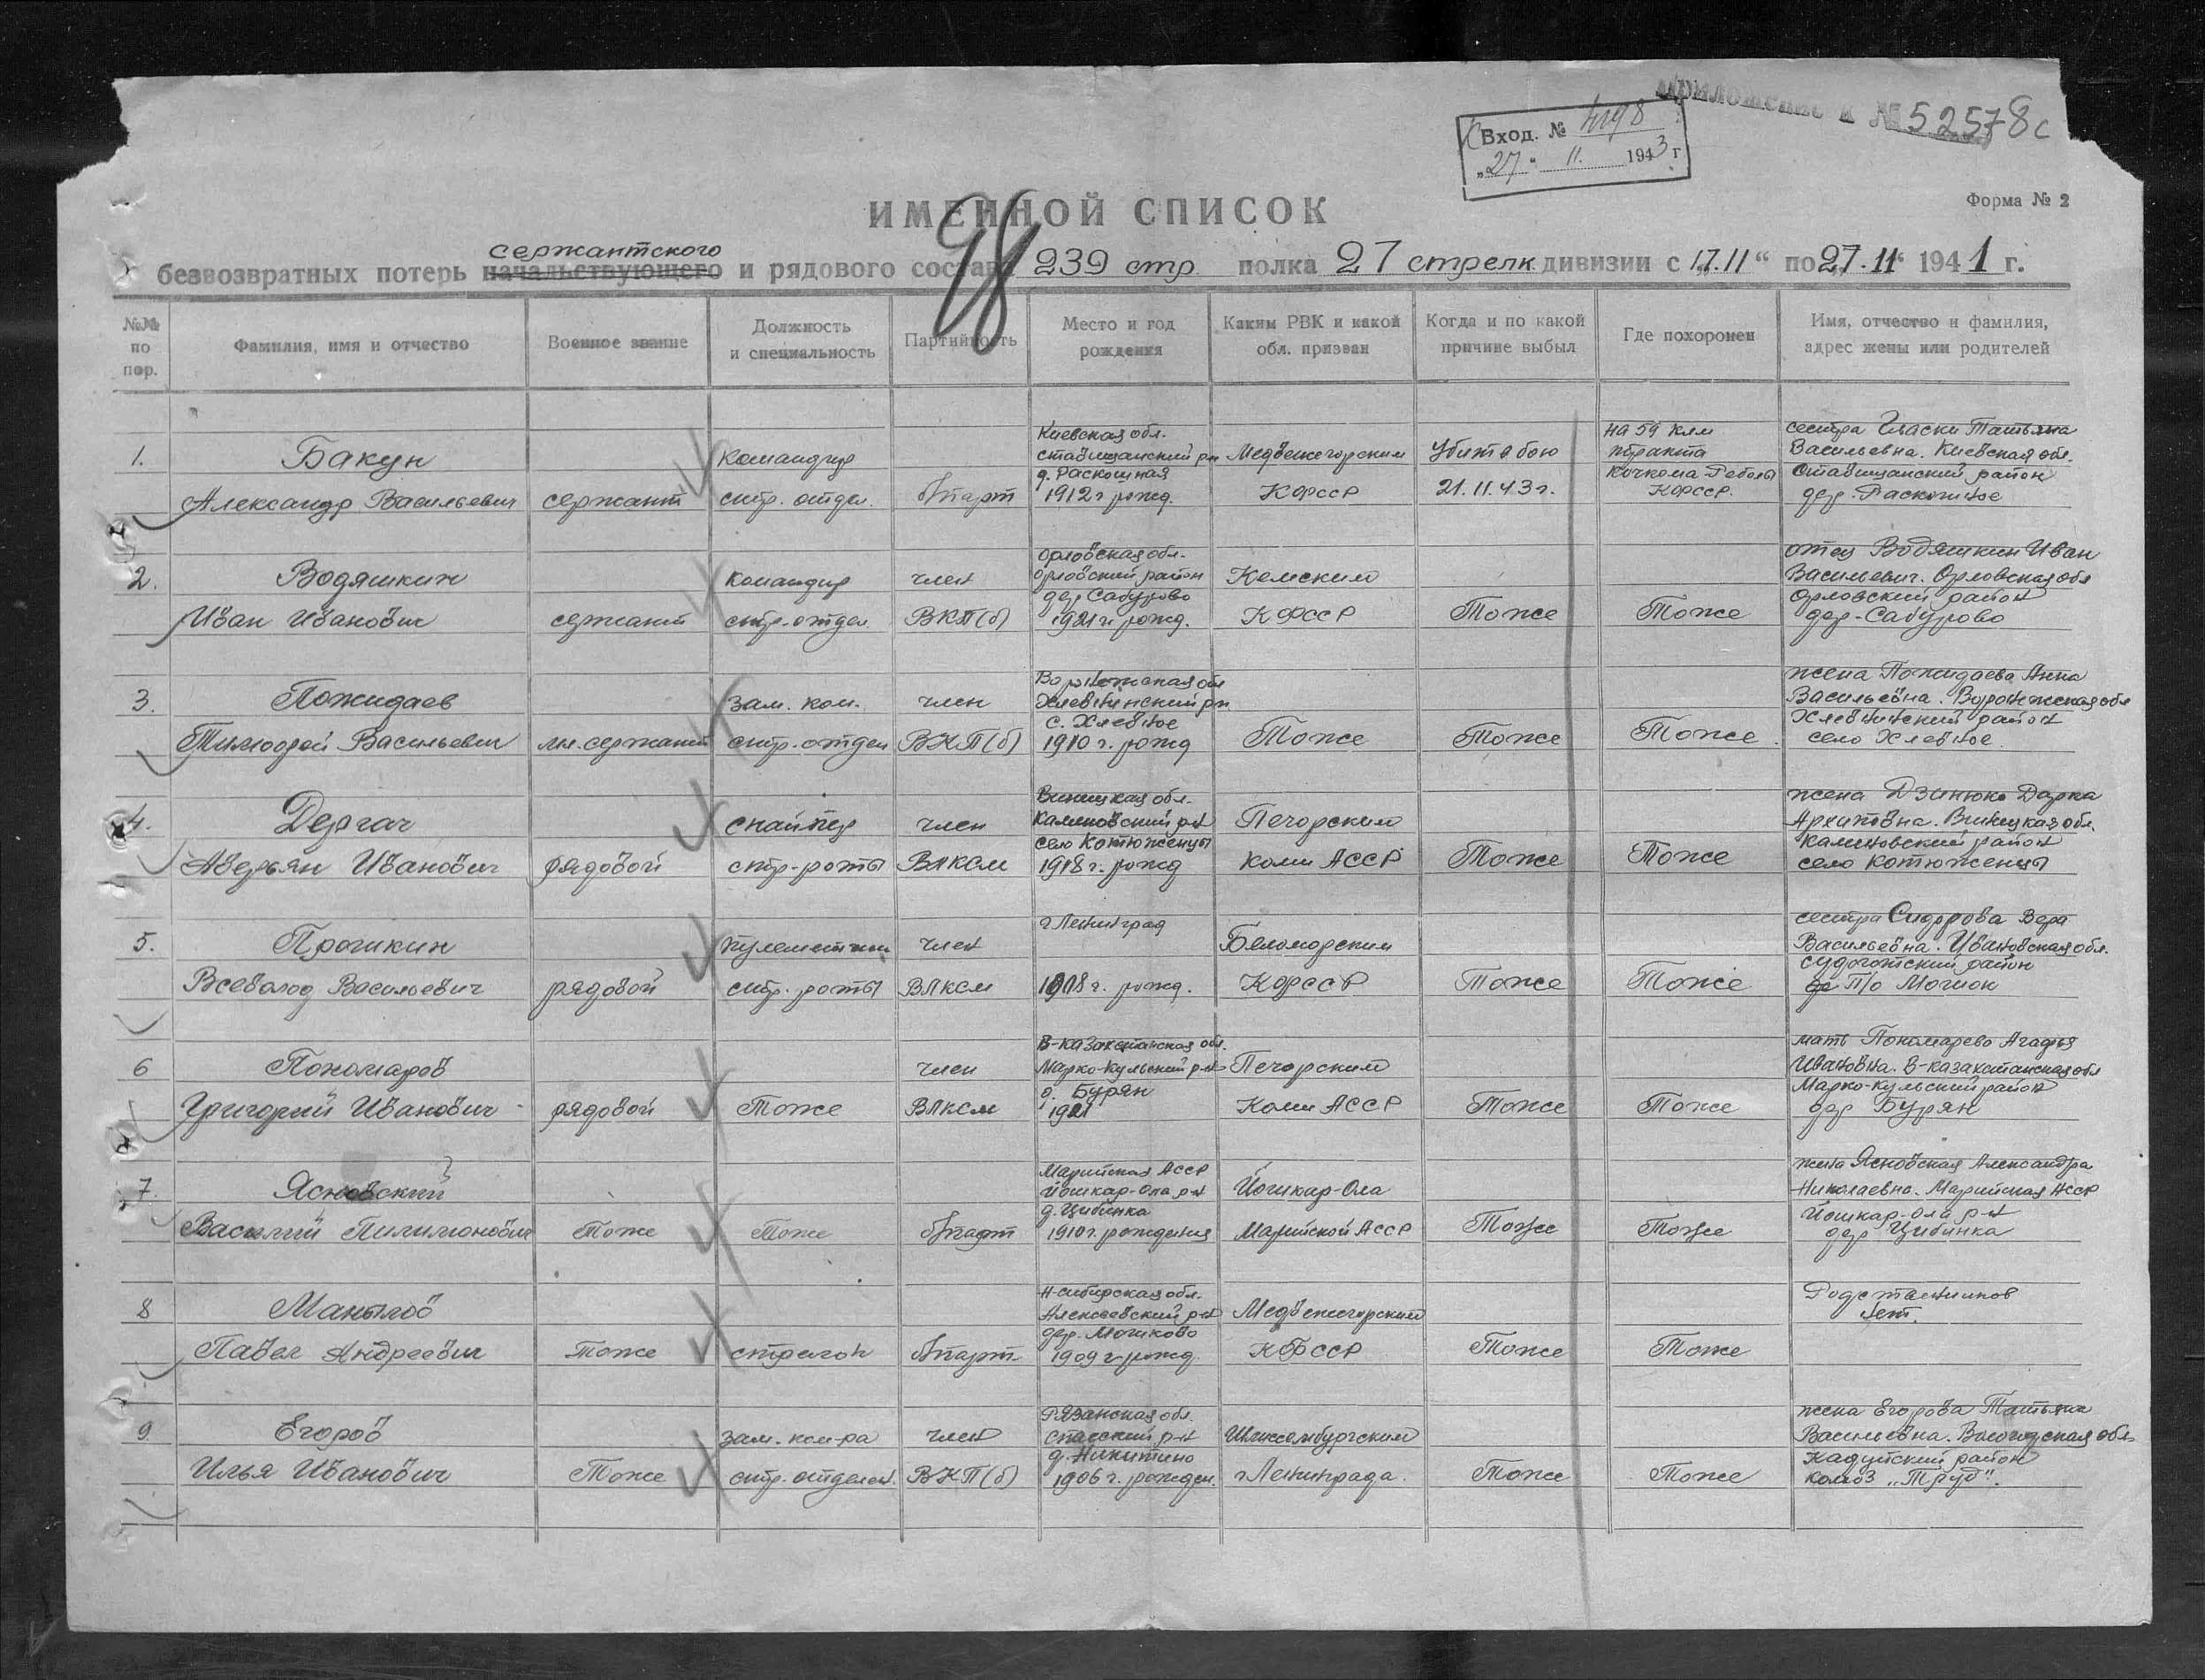 Приложение к № 52578с
Вход. № 4198
"27" 11. 1943 г
Форма № 2
ИМЕННОЙ СПИСОК
98
сержантского
безвозвратных потерь начальствующего и рядового состава 239 стр. полка 27 стрелк. дивизии с "17.11" по "27.11" 1941 г.
№№ по пор.
Фамилия, имя и отчество
Военное звание
Должность и специальность
Партийность
Место и год рождения
Каким РВК и какой обл. призван
Когда и по какой причине выбыл
Где похоронен
Имя, отчество и фамилия, адрес жены или родителей
1.
Бакун
Александр Васильевич
сержант
Командир
стр. отдел.
б/парт
Киевская обл.
Ставищанский рн
д. Раскошная
1912 г рожд.
Медвежегорским
КФССР
Убит в бою
21.11.43 г.
на 59 клм
тракта
Кочкома-Реболы
КФССР.
сестра Татьяна
Васильевна. Киевская обл.
Ставищанский район
дер. Раскошное
2.
Водяшкин
Иван Иванович
сержант
командир
стр. отдел
член
ВКП(б)
Орловская обл.
Орловский район
дер Сабурово
1921 г. рожд.
Кемским
КФССР
Тоже
Тоже
отец Водяшкин Иван
Васильевич. Орловская обл
Орловский район
дер. Сабурово
3.
Пожидаев
Тимофей Васильевич
мл. сержант
зам. ком.
стр. отдел
член
ВКП(б)
Воронежская обл
Хлевненский рн
с. Хлевное
1910 г. рожд
Тоже
Тоже
Тоже
жена Пожидаева Анна
Васильевна. Воронежская обл
Хлевнинский район
село Хлевное.
4.
Дергач
Аверьян Иванович
рядовой
снайпер
стр-роты
член
ВЛКСМ
Виницкая обл.
Калиновский р-н
село Котюженцы
1918 г. рожд
Печорским
Коми АССР
Тоже
Тоже
жена Дзинюко Дарка
Архиповна. Виницкая обл.
Калиновский район
село Котюженцы
5.
Прошкин
Всеволод Васильевич
рядовой
пулеметчик
стр. роты
член
ВЛКСМ
г Ленинград
1918 г. рожд.
Беломорским
КФССР
Тоже
Тоже
сестра Сидорова Вера
Васильевна. Ивановская обл.
Судоготский район
П/о Мошок
6
Пономарев
Григорий Иванович
рядовой
Тоже
член
ВЛКСМ
В-казахстанская обл.
Марко-Кульский р-н
д. Бурян
1921
Печорским
Коми АССР
Тоже
Тоже
мать Пономарева Агафья
Ивановна. В-казахстанская обл
Марко-кульский район
дер Бурян
7.
Ясновский
Василий Пилимонович
Тоже
Тоже
б/парт
Марийская АССР
Йошкар-Ола р-н
д. Цибинка
1910 г. рождения
Йошкар-Ола
Марийской АССР
Тоже
Тоже
жена Ясновская Александра
Николаевна. Марийская АССР
Йошкар-Ола р-н
дер Цибинка
8
Манылов
Павел Андреевич
Тоже
стрелок
б/парт
Н-сибирская обл.
Алексеевский р-н
дер. Мошково
1909 г рожд.
Медвежегорским
КФССР
Тоже
Тоже
Родственников
нет.
9.
Егоров
Илья Иванович
Тоже
зам. ком-ра
стр. отделен.
член
ВКП(б)
Рязанская обл.
Спасский р-н
д. Никитино
1906 г. рожден.
Шлиссельбургским
г Ленинграда.
Тоже
Тоже
жена Егорова Татьяна
Васильевна. Вологодская обл.
Кадуйский район
колхоз „Труд".